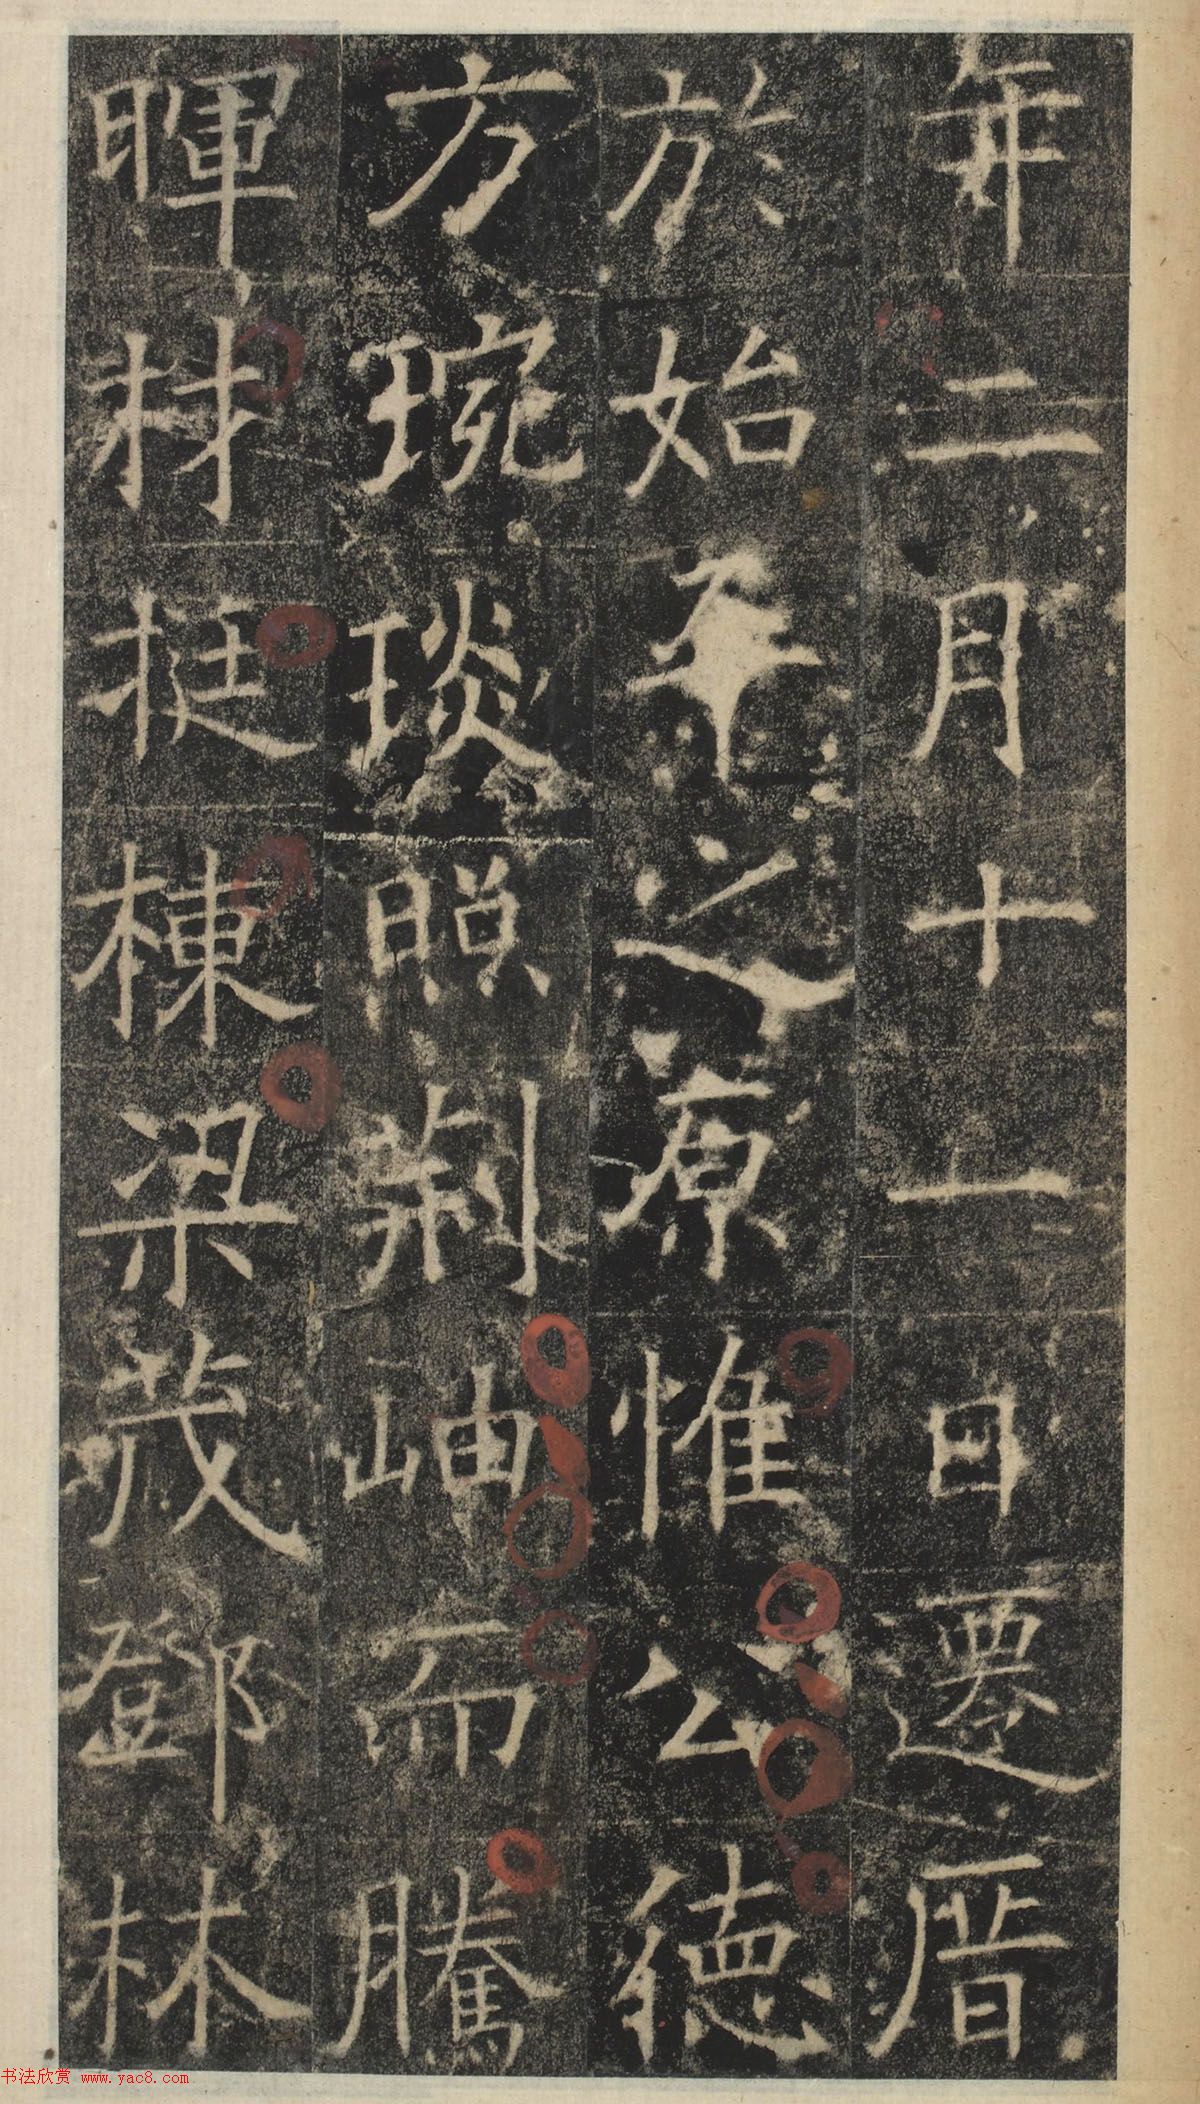 年二月十一日遷厝
於始平之原惟公德
方琬琰照荊岫而騰
暉材挺棟梁茂鄧林
书法欣赏 www.yac8.com